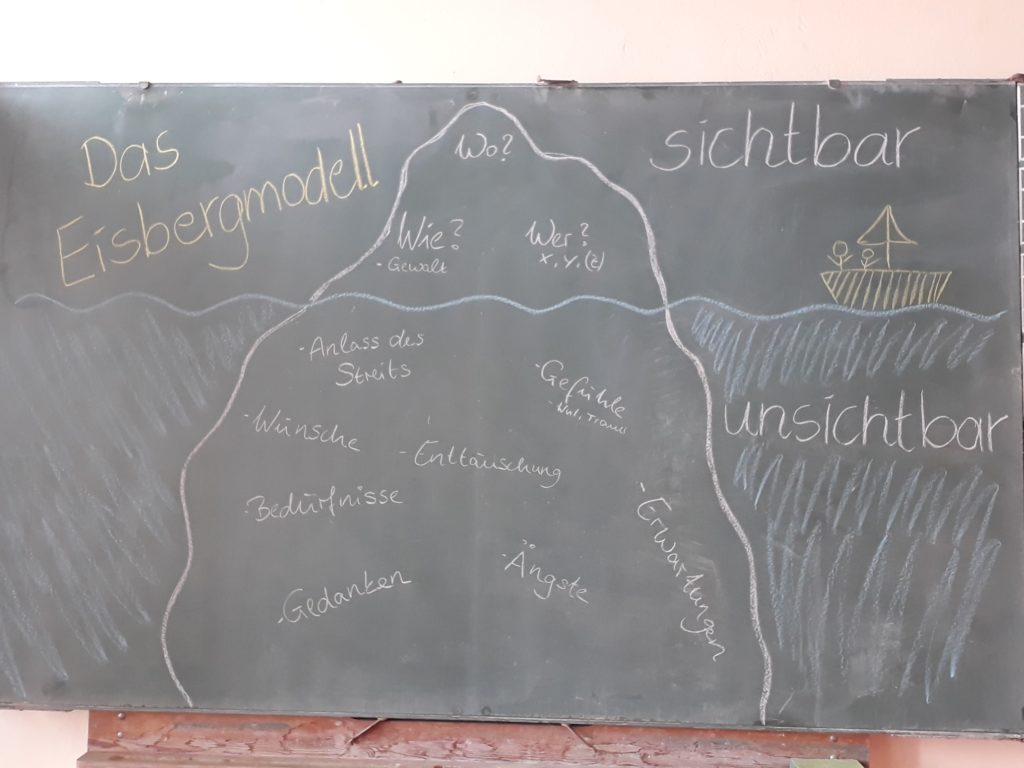 Das
Eisbergmodell
sichtbar
Wo?
Wie?
- Gewalt
Wer?
x, y, (z)
- Anlass des
Streits
- Gefühle
- Wut, Trauer
unsichtbar
- Wünsche
- Enttäuschung
- Bedürfnisse
- Erwartungen
- Ängste
- Gedanken